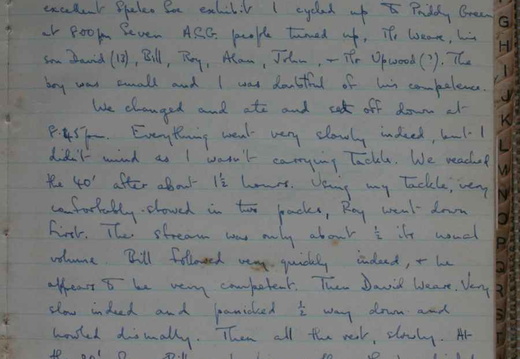 excellent Speleo Soc exhibit I cycled up to Priddy Green
at 8.00pm Seven A.C.G. people turned up, Mr Weare, his
son David (13), Bill, Roy, Alan, John, + Mr Upwood (?). The
boy was small and I was doubtful of his competence.
We changed and ate and set off down at
8.45pm. Everything went very slowly indeed, but I
didn't mind as I wasn't carrying Tackle. We reached
the 40' after about 1½ hours. Using my Tackle, very
comfortably stowed in two packs, Roy went down
first. The stream was only about ½ its usual
volume Bill followed very quickly indeed, + he
appears to be very competent. Then David Weare. Very
slow indeed and panicked ½ way down and
howled dismally. Then all the rest, slowly. At
the 20'
G
H
I
J
K
L
M
N
O
P
Q
R
S